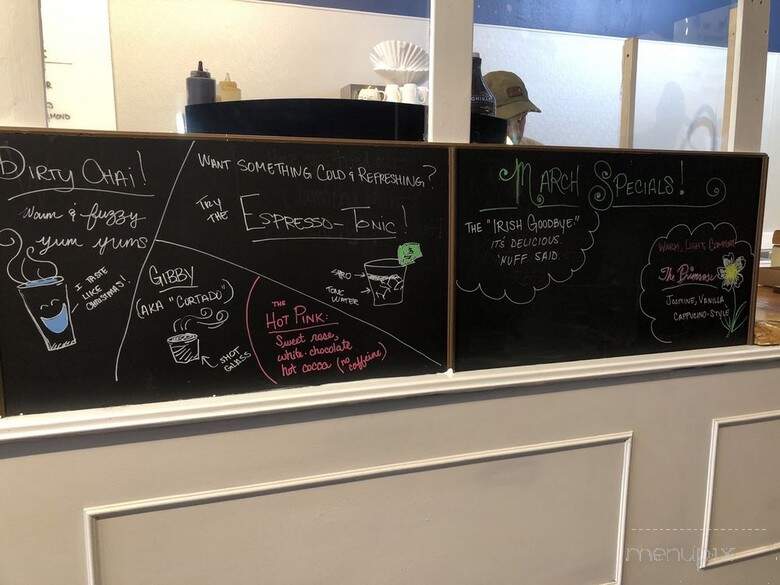 DIRTY CHAI!
Warm & fuzzy
yum yums
I TASTE
LIKE
CHRISTMAS!
WANT SOMETHING COLD & REFRESHING?
TRY
THE
ESPRESSO-TONIC!
TONIC
WATER
GIBBY
(AKA "CORTADO")
SHOT
GLASS
THE
HOT PINK:
Sweet rose,
white-chocolate
hot cocoa (no caffeine)
MARCH SPECIALS!
THE "IRISH GOODBYE"
ITS DELICIOUS.
'NUFF SAID.
WARM, LIGHT, COMFORT
The Primrose
JASMINE, VANILLA
CAPPUCINO-STYLE
menupix